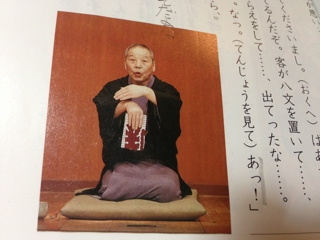 くださいまし。(おくへ) はあ
るんだぞ。客が八文を置いて……、
らえをして……、出てったな……。
なっ。(てんじょうを見て)あっ！」
ら。